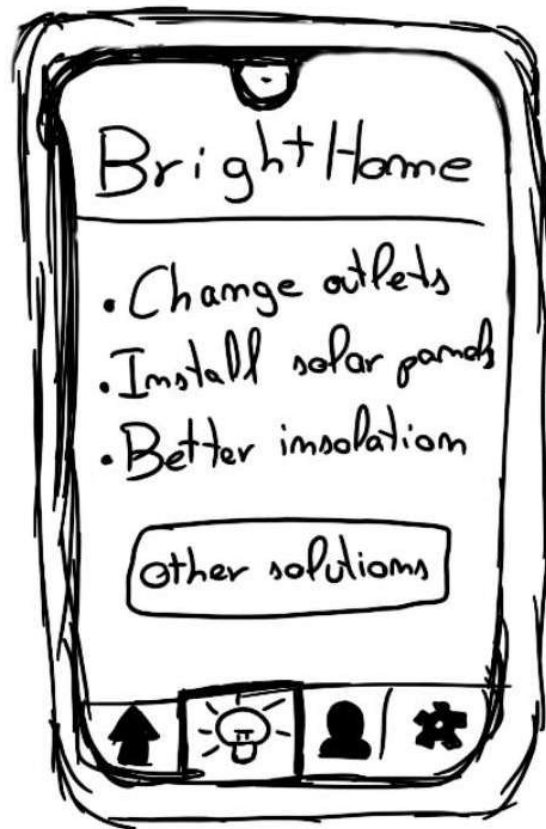 Bright Home
• Change outlets
• Install solar panels
• Better insolation
other solutions